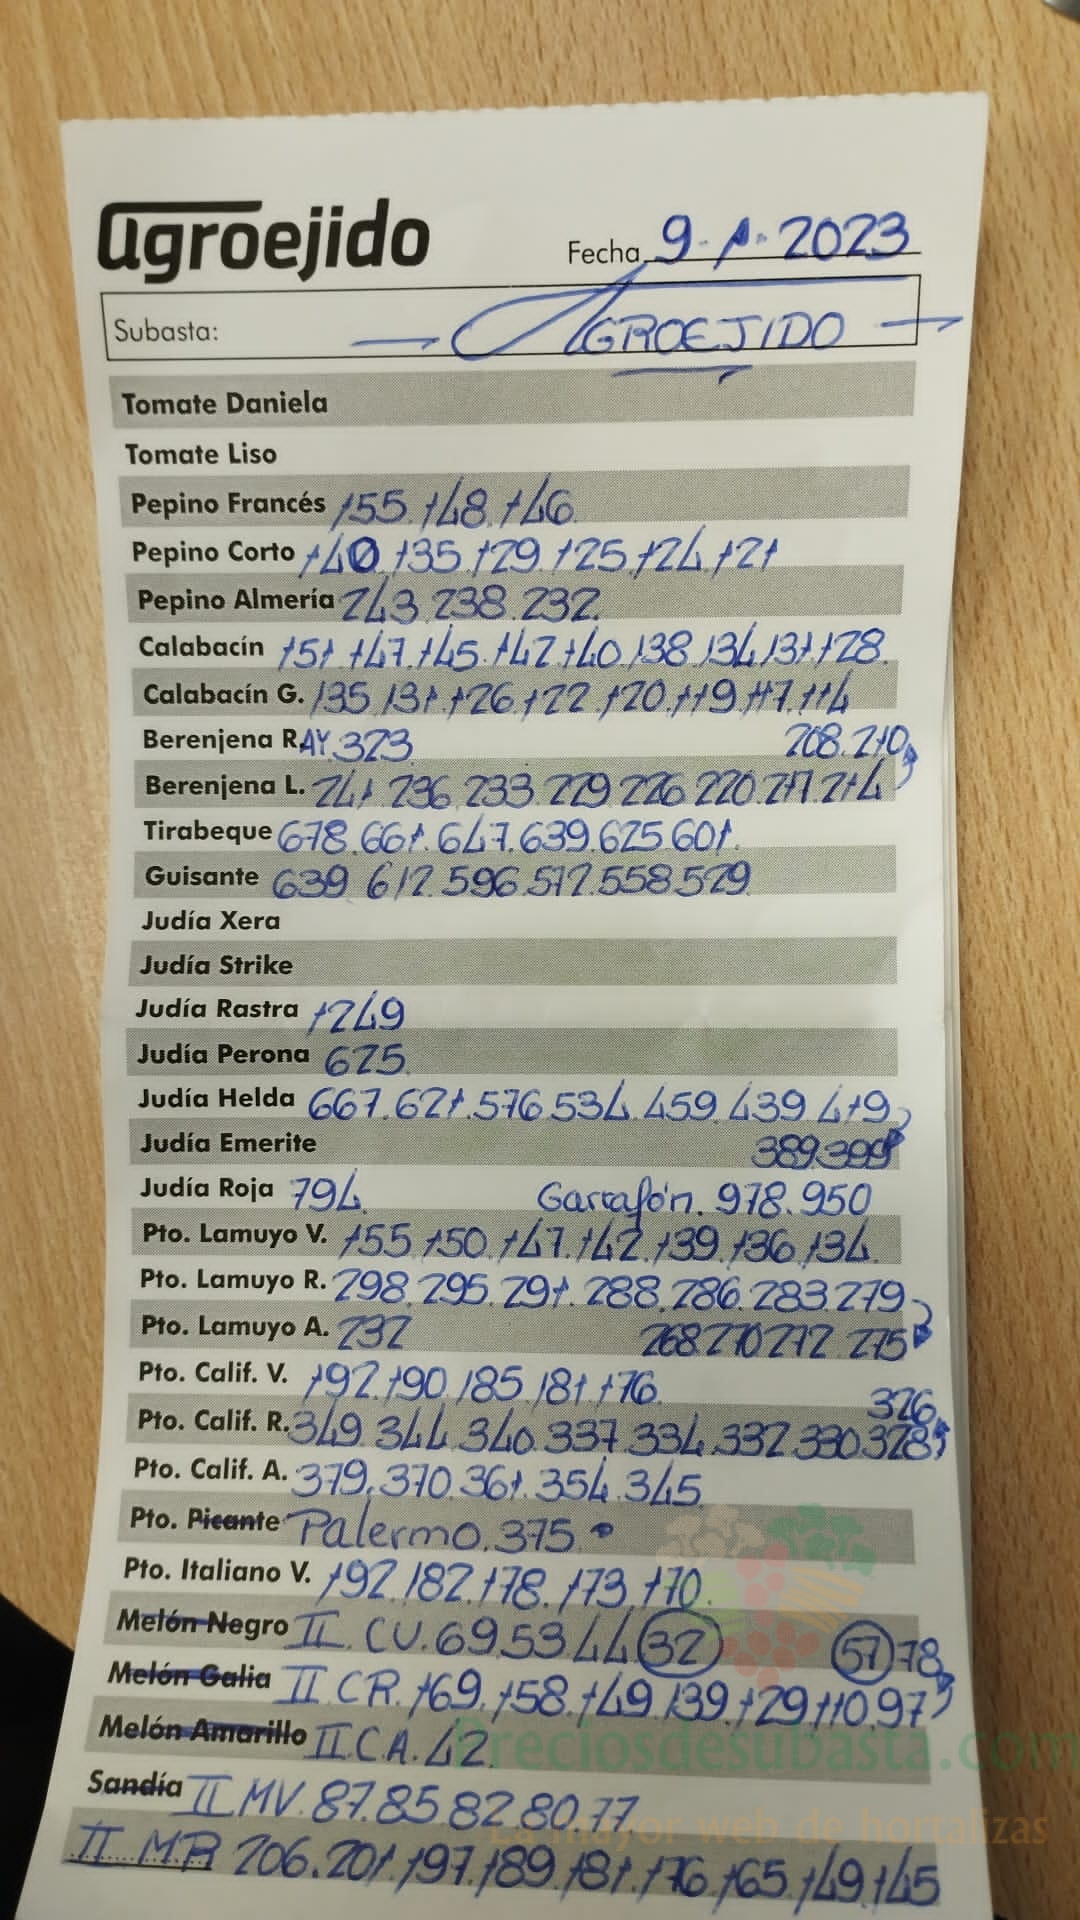 agroejido
Fecha 9-1-2023
Subasta: AGROEJIDO
Tomate Daniela
Tomate Liso
Pepino Francés 155.148.146
Pepino Corto 140.135.129.125.124.121
Pepino Almería 243.238.232.
Calabacín 151.147.145.142.140.138.134.131.128.
Calabacín G. 135.131.126.122.120.119.117.114
Berenjena R.AY.323 208.210
Berenjena L. 241.236.233.229.226.220.217.214
Tirabeque 678.661.647.639.625.601.
Guisante 639.612.596.572.558.529.
Judía Xera
Judía Strike
Judía Rastra 1249
Judía Perona 625
Judía Helda 667.621.576.534.459.439.419
Judía Emerite 389.399
Judía Roja 794 Garrafón. 978.950
Pto. Lamuyo V. 155.150.147.142.139.136.134.
Pto. Lamuyo R. 298.295.291.288.286.283.279
Pto. Lamuyo A. 232 268.270.272.275
Pto. Calif. V. 192.190.185.181.176. 326
Pto. Calif. R. 349.344.340.337.334.332.330.328
Pto. Calif. A. 379.370.361.354.345
Pto. Picante Palermo.375
Pto. Italiano V. 192.182.178.173.170.
Melón Negro II.CV.69.53.44 32 57 78
Melón Galia II CR.169.158.149.139.129.110.97
Melón Amarillo II.C.A.42
Sandía II MV.87.85.82.80.77
II MR 206.201.197.189.181.176.165.149.145
Preciosdesubasta.com
La mayor web de hortalizas